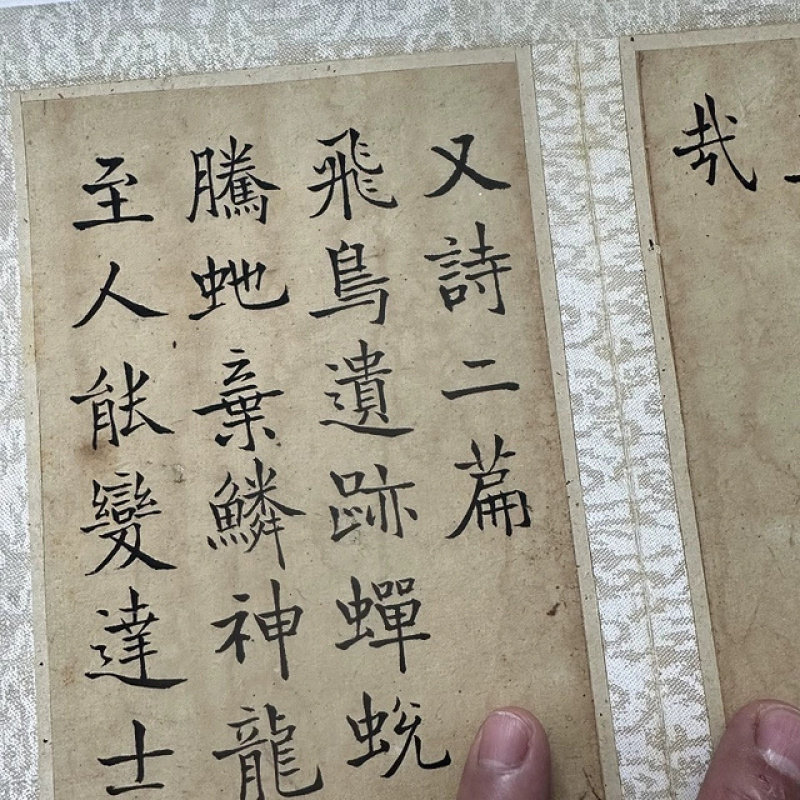 哉
又詩二篇
飛鳥遺跡蟬蛻
騰虵棄鱗神龍
至人能變達士